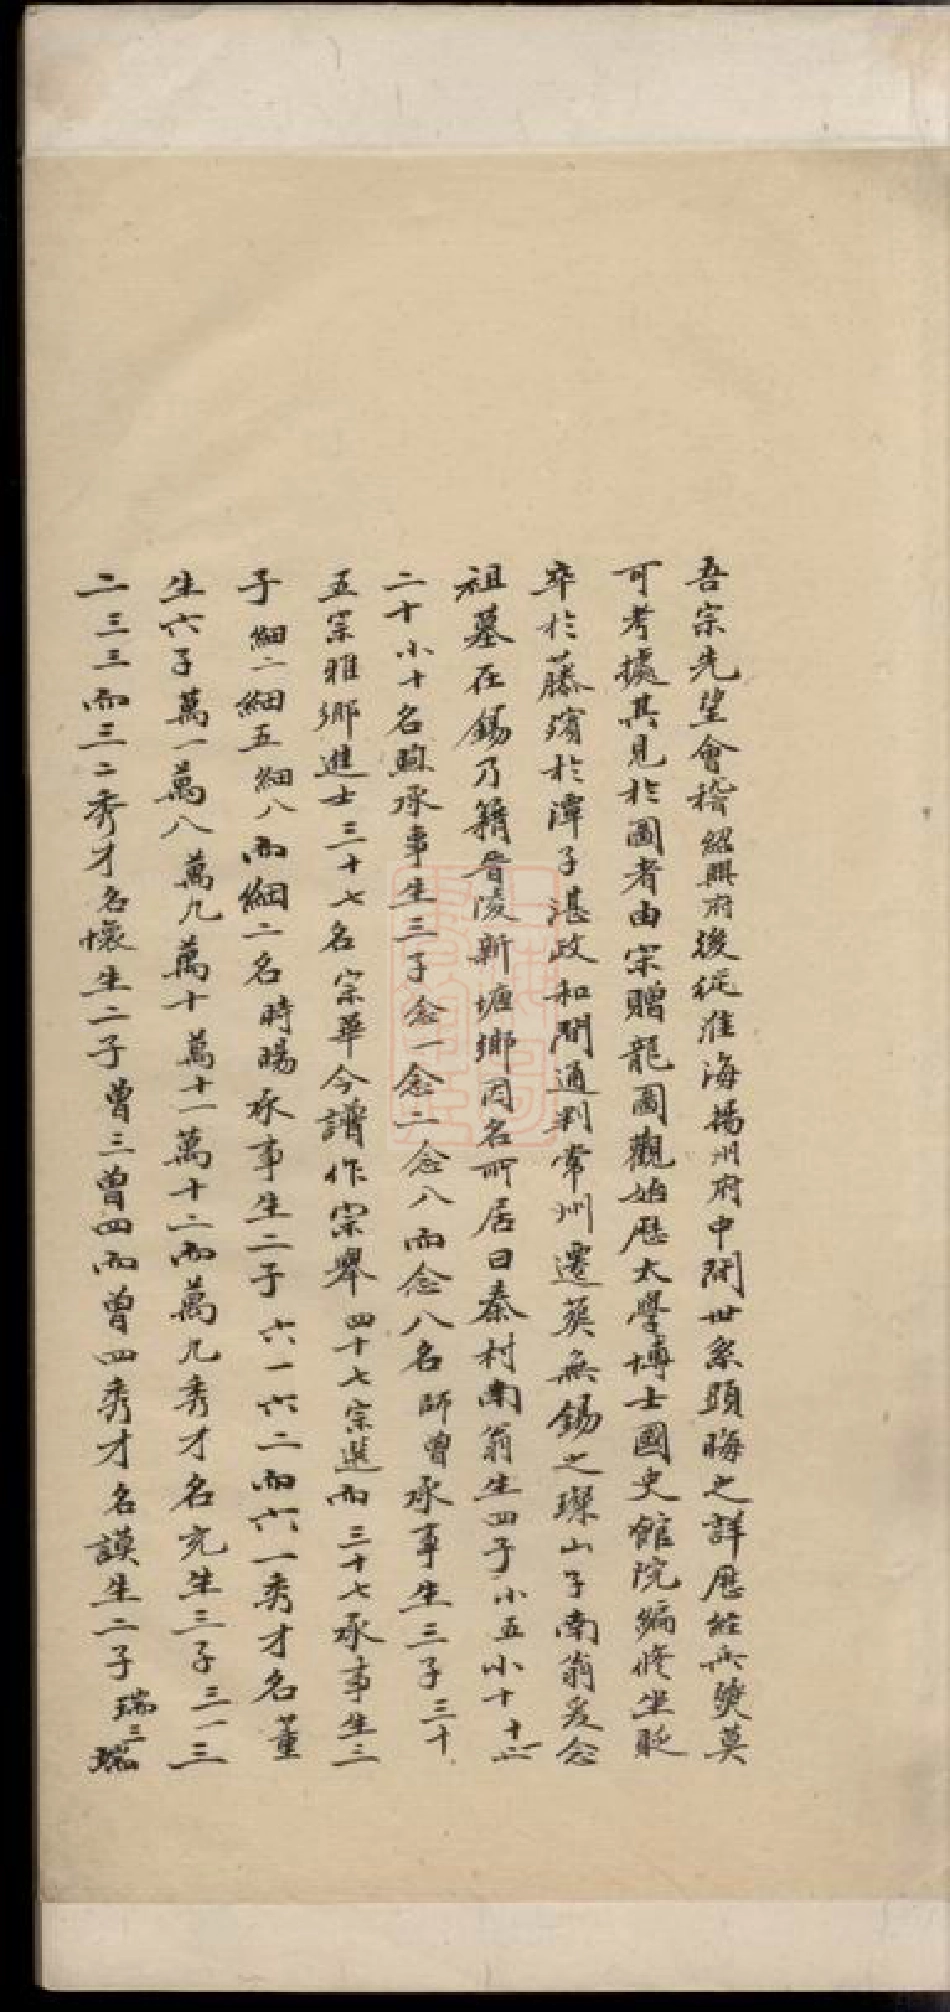 吾宗先望會稽紹興府後從淮海揚州府中閒世系顯晦之詳歷經兵燹莫
可考據其見於圖者由宋贈龍圖觀始歷太學博士國史館院編修坐貶
卒於藤殯於潭子湛政和閒通判常州遷葬無錫之璨山子南翁爰念
祖墓在錫乃籍晉陵新塘鄉因名所居曰秦村南翁生四子小五小十十六
二十小十名煦承事生三子念一念二念八而念八名師曾承事生三子三十
五宗雅鄉進士三十七名宗華今譜作宗舉四十七宗進而三十七承事生三
子細二細五細八而細二名時暘承事生二子六一六二而六一秀才名董
生六子萬一萬八萬九萬十萬十一萬十二而萬九秀才名充生三子三一三
二三三而三二秀才名懷生二子曾三曾四而曾四秀才名謨生二子瑞三瑞